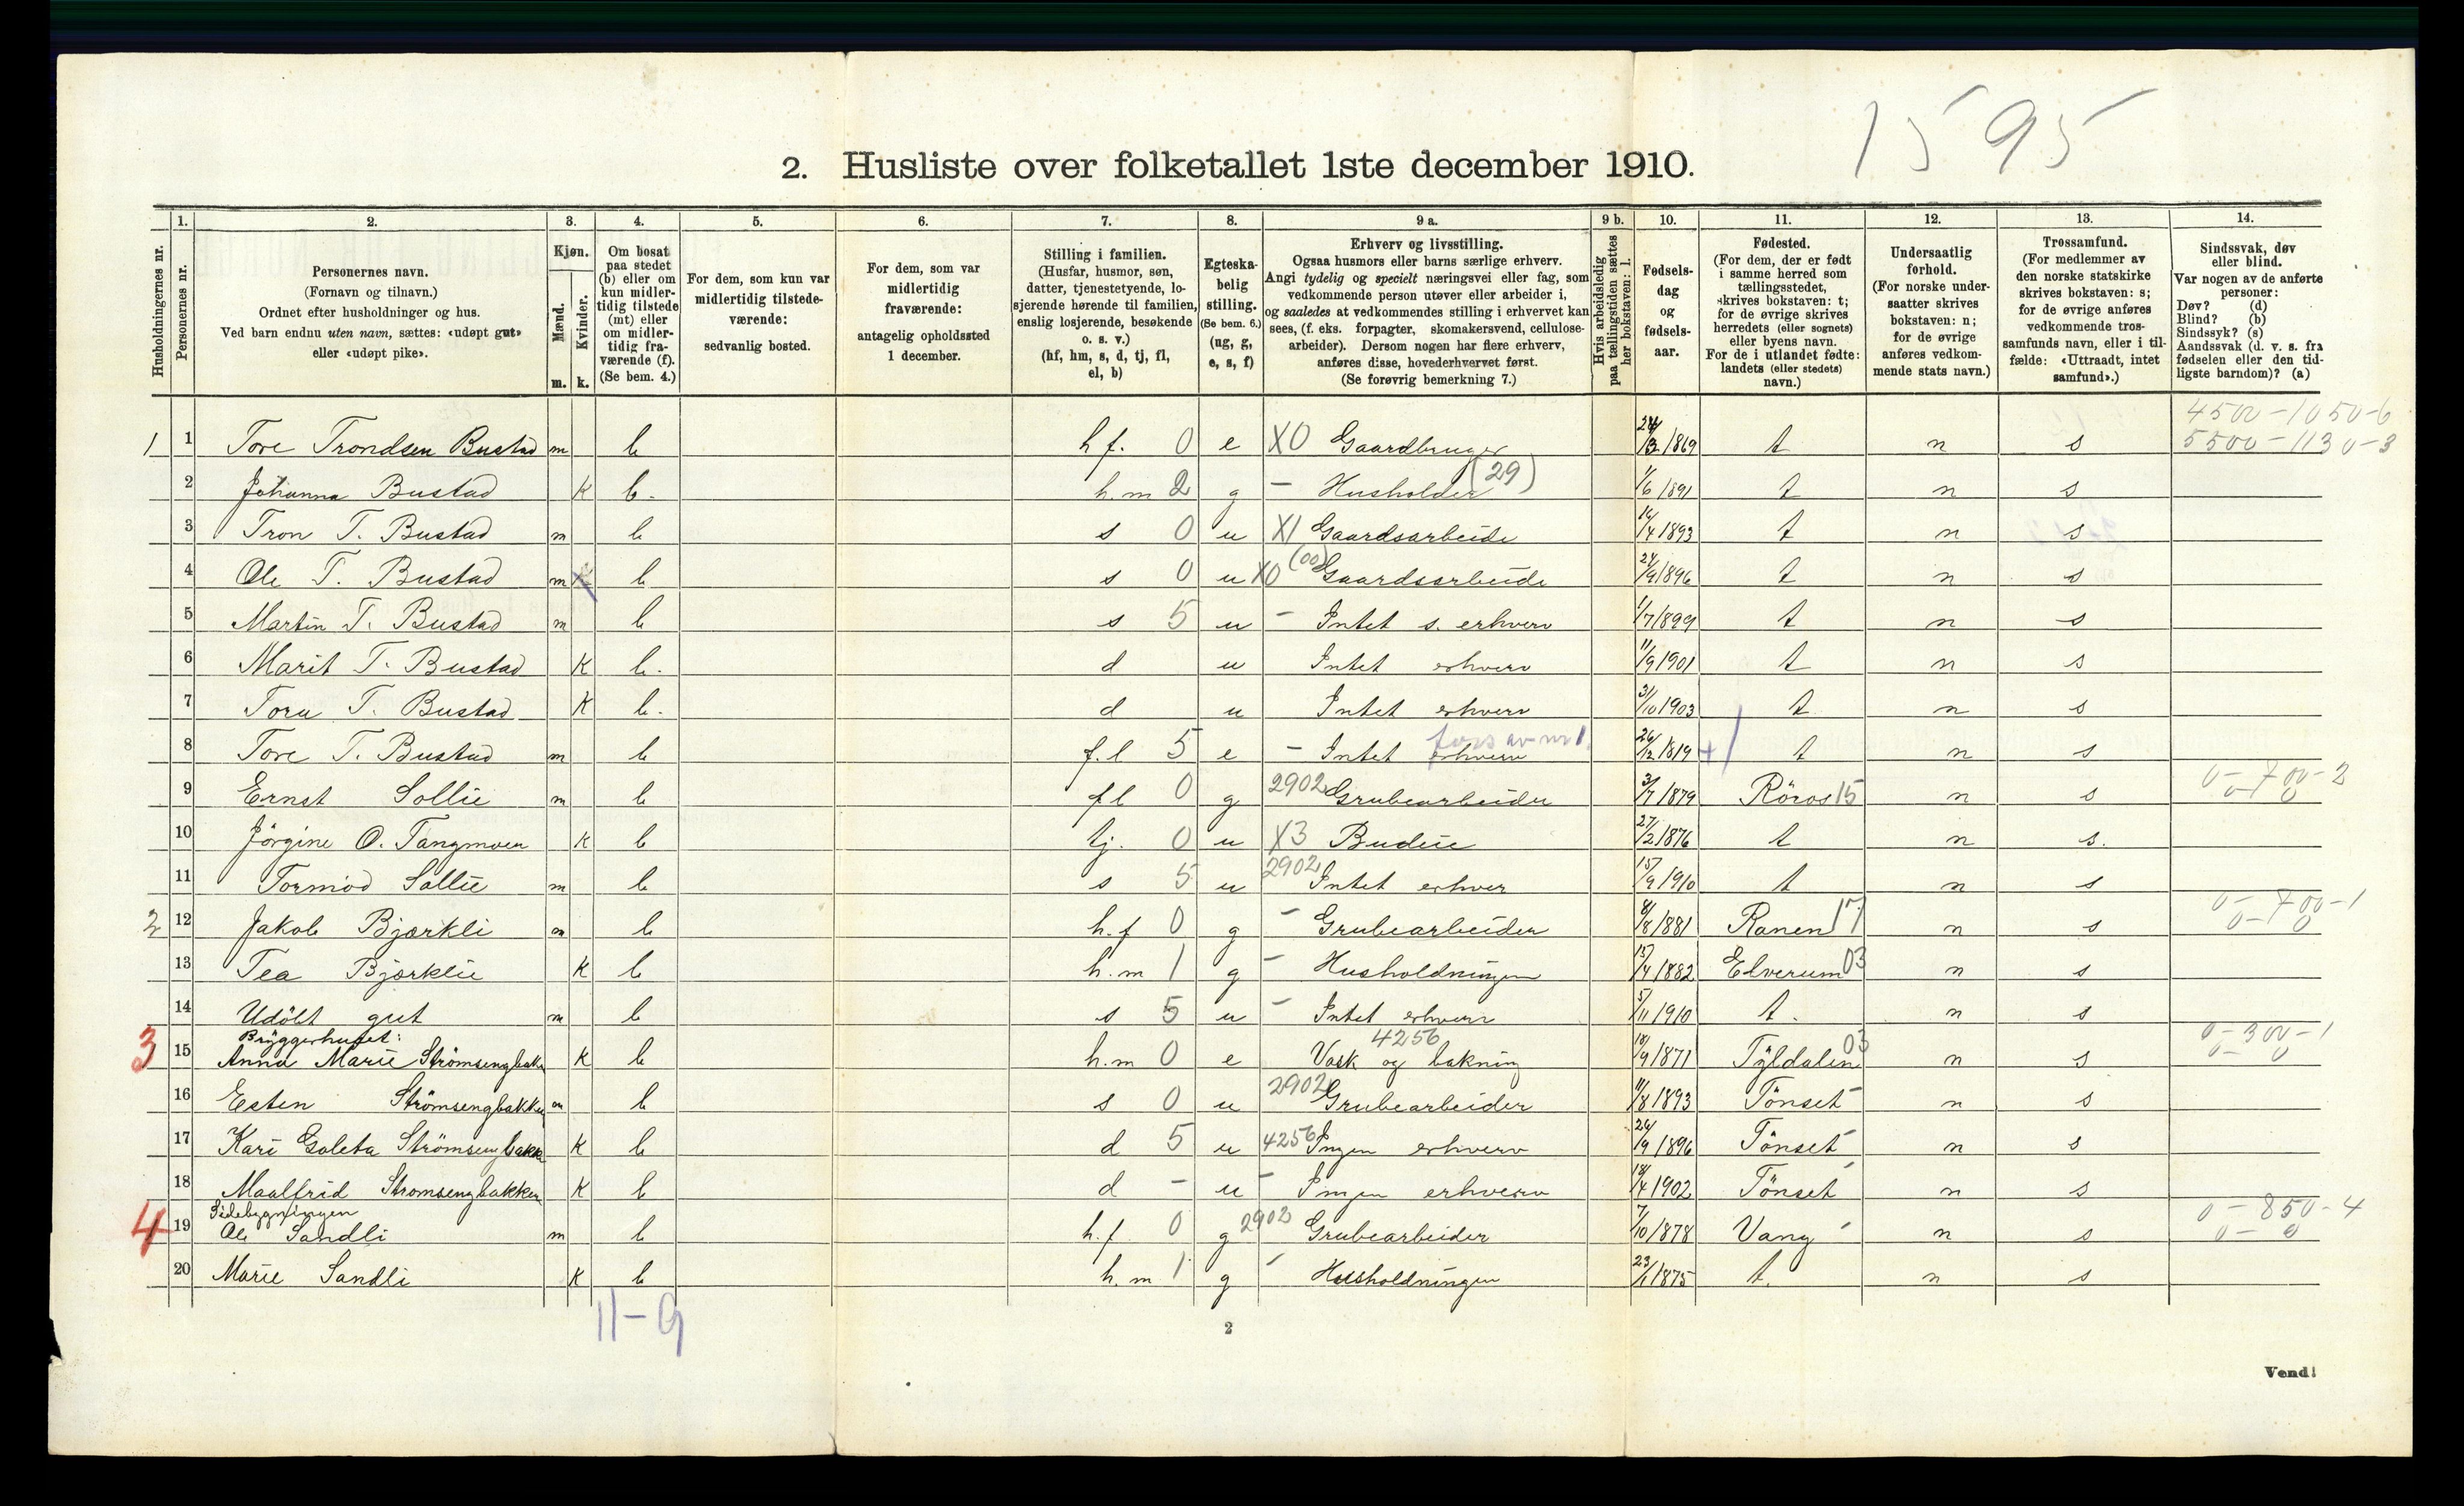 1595
2. Husliste over folketallet 1ste december 1910.
Husholdningernes nr.
1. Personernes nr.
2. Personernes navn.
(Fornavn og tilnavn.)
Ordnet efter husholdninger og hus.
Ved barn endnu uten navn, sættes: «udøpt gut»
eller «udøpt pike».
3. Kjøn.
Mænd. m.
Kvinder. k.
4. Om bosat
paa stedet
(b) eller om
kun midler-
tidig tilstede
(mt) eller
om midler-
tidig fra-
værende (f).
(Se bem. 4.)
5. For dem, som kun var
midlertidig tilstede-
værende:
sedvanlig bosted.
6. For dem, som var
midlertidig
fraværende:
antagelig opholdssted
1 december.
7. Stilling i familien.
(Husfar, husmor, søn,
datter, tjenestetyende, lo-
sjerende hørende til familien,
enslig losjerende, besøkende
o. s. v.)
(hf, hm, s, d, tj, fl,
el, b)
8. Egteska-
belig
stilling.
(Se bem. 6.)
(ug, g,
e, s, f)
9 a. Erhverv og livsstilling.
Ogsaa husmors eller barns særlige erhverv.
Angi tydelig og specielt næringsvei eller fag, som
vedkommende person utøver eller arbeider i,
og saaledes at vedkommendes stilling i erhvervet kan
sees, (f. eks. forpagter, skomakersvend, cellulose-
arbeider). Dersom nogen har flere erhverv,
anføres disse, hovederhvervet først.
(Se forøvrig bemerkning 7.)
9 b. Hvis arbeidsledig
paa tællingstiden sættes
her bokstaven: l.
10. Fødsels-
dag
og
fødsels-
aar.
11. Fødested.
(For dem, der er født
i samme herred som
tællingsstedet,
skrives bokstaven: t;
for de øvrige skrives
herredets (eller sognets)
eller byens navn.
For de i utlandet fødte:
landets (eller stedets)
navn.)
12. Undersaatlig
forhold.
(For norske under-
saatter skrives
bokstaven: n;
for de øvrige
anføres vedkom-
mende stats navn.)
13. Trossamfund.
(For medlemmer av
den norske statskirke
skrives bokstaven: s;
for de øvrige anføres
vedkommende tros-
samfunds navn, eller i til-
fælde: «Uttraadt, intet
samfund».)
14. Sindssvak, døv
eller blind.
Var nogen av de anførte
personer:
Døv? (d)
Blind? (b)
Sindssyk? (s)
Aandssvak (d. v. s. fra
fødselen eller den tid-
ligste barndom)? (a)
4500-1050-6
1 1 Tore Trondsen Bustad m b hf. 0 e X0 Gaardbruger 1869 t n s 5500-1130-3
2 Johanna Bustad K b. h.m 2 g - Husholder (29) 1/6 1891 t n s
3 Tron T. Bustad m b s 0 u X1 Gaardsarbeide 16/4 1893 t n s
4 Ole T. Bustad m b s 0 u X0 (00) Gaardsarbeide 24/9 1896 t n s
5 Martin T. Bustad m b s 5 u - Intet s. erhverv 1/7 1899 t n s
6 Marit T. Bustad K b. d u Intet erhverv 11/9 1901 t n s
7 Tora T. Bustad K b. d u Intet erhverv 31/10 1903 t n s
8 Tore T. Bustad m b f.l 5 e - Intet erhverv 26/12 1819 t n s
9 Ernst Sollie m b fl 0 g 2902 Grubearbeider 3/7 1879 Röros 15 n s 0-700-2
10 Jörgine O. Tangmoen K b tj. 0 u X3 Budeie 27/2 1876 t n s.
11 Tormod Sollie m b s 5 u 2902 Intet erhver 15/9 1910 t n s
2 12 Jakob Bjørkli m b h.f 0 g - Grubearbeider 8/8 1881 Ranen 17 n s 0-700-1
13 Tea Bjørklie K b h.m 1 g - Husholdningen 15/4 1882 Elverum 03 n s
14 Udöbt gut m b s 5 u - Intet erhverv 5/11 1910 t. n s
Bryggerhuset:
3 15 Anna Marie Strömsengbakk K b h.m 0 e Vask og bakning 4256 18/9 1871 Tyldalen 03 n s 0-300-1
16 Esten Strömsengbakken m b s 0 u 2902 Grubearbeider 11/8 1893 Tönset n s
17 Kari Goleta Strömsengbakk K b d 5 u 4256 Ingen erhverv 26/9 1896 Tönset n s
18 Maalfrid Stromsengbakken K b d - u - Ingen erhverv 18/4 1902 Tönset n s
Sidebygningen
4 19 Ole Sandli m b h.f. 0 g 2902 Grubearbeider 7/10 1878 Vang n s 0-850-4
20 Marie Sandli K b h.m 1 g Husholdningen 23/1 1875 t. n s
11-9
2
Vend!